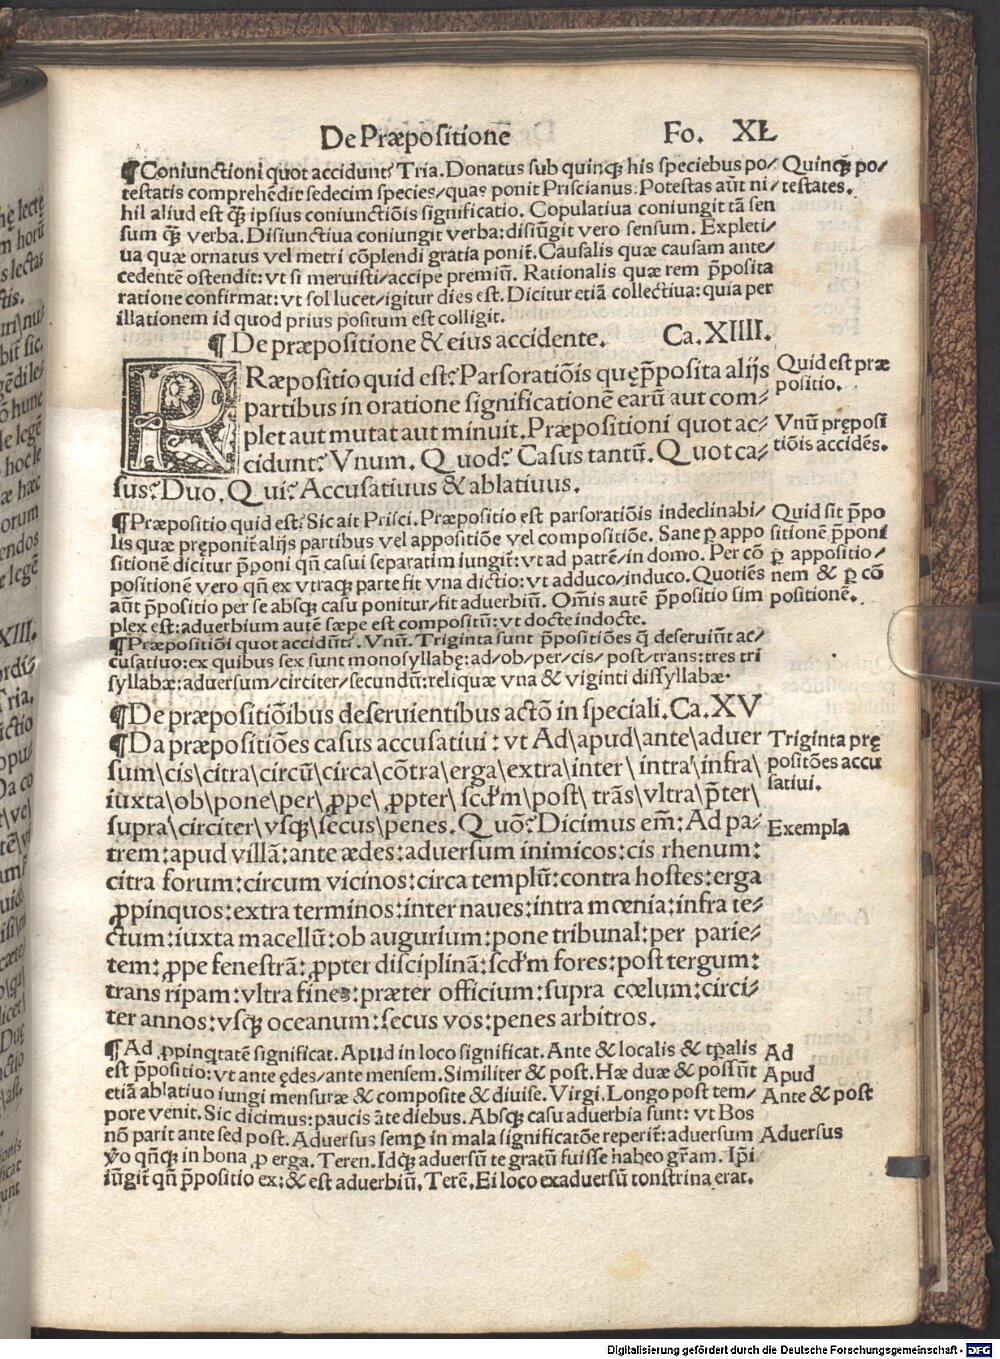 De Præpositione Fo. XL
¶Coniunctioni quot accidunt? Tria. Donatus sub quinqꝫ his speciebus po⸗
testatis comprehẽdit sedecim species/quas ponit Priscianus: Potestas aũt ni⸗
hil aliud est qꝫ̃ ipsius coniunctiõis significatio. Copulatiua coniungit tã sen
sum qꝫ̃ verba. Disiunctiua coniungit verba:disiũgit vero sensum. Expleti⸗
ua quæ ornatus vel metri cõplendi gratia ponit̃. Causalis quæ causam ante⸗
cedentẽ ostendit: vt si meruisti/accipe premiũ. Rationalis quæ rem p̃posita
ratione confirmat: vt sol lucet/igitur dies est. Dicitur etiã collectiua: quia per
illationem id quod prius positum est colligit.
Quinqꝫ po⸗
testates.
¶ De præpositione & eius accidente. Ca. XIIII.
PRæpositio quid est? Pars oratiõis quę p̃posita alijs
partibus in oratione significationẽ earũ aut com⸗
plet aut mutat aut minuit. Præpositioni quot ac⸗
cidunt? Vnum. Quod? Casus tantũ. Quot ca⸗
sus? Duo. Qui? Accusatiuus & ablatiuus.
Quid est præ
positio.
Vnũ pręposi
tiõis accidẽs.
¶Præpositio quid est? Sic ait Prisci. Præpositio est pars oratiõis indeclinabi⸗
lis quæ pręponit̃ alijs partibus vel appositiõe vel compositiõe. Sane ꝑ appo
sitionẽ dicitur p̃poni qñ casui separatim iungit̃: vt ad patrẽ/in domo. Per cõ
positionẽ vero qñ ex vtraqꝫ parte fit vna dictio: vt adduco/induco. Quotiẽs
aũt p̃positio per se absqꝫ casu ponitur/fit adverbiũ. Om̃is autẽ p̃positio sim
plex est: aduerbium autẽ sæpe est compositũ: vt docte indocte.
Quid sit p̃po
sitionẽ p̃poni
ꝑ appositio⸗
nem & ꝑ cõ
positionẽ.
¶Præpositiõi quot accidũt?. Vnũ. Triginta sunt p̃positiões q̃ deseruiũt ac⸗
cusatiuo: ex quibus sex sunt monosyllabę: ad/ob/per/cis/post/trans: tres tri
syllabæ: aduersum/circiter/secundũ: reliquæ vna & viginti dissyllabæ.
¶De præpositiõibus deseruientibus actõ in speciali. Ca. XV
¶Da præpositiões casus accusatiui: vt Ad\apud\ante\aduer
sum\cis\citra\circũ\circa\cõtra\erga\extra\inter\intra\infra\
iuxta\ob\pone\per\ꝓpe\ꝓpter\scd'm\post\trãs\vltra\p̃ter\
supra\circiter\vsqꝫ\secus\penes. Quõ? Dicimus em̃: Ad pa⸗
trem: apud villã: ante ædes: aduersum inimicos: cis rhenum:
citra forum: circum vicinos: circa templũ: contra hostes: erga
ꝓpinquos: extra terminos: inter naues: intra mœnia: infra te⸗
ctum: iuxta macellũ: ob augurium: pone tribunal: per parie⸗
tem: ꝓpe fenestrã: ꝓpter disciplinã: scd'm fores: post tergum:
trans ripam: vltra fines: præter officium: supra cœlum: circi⸗
ter annos: vsqꝫ oceanum: secus vos: penes arbitros.
Triginta prę
positões accu
satiui.
Exempla
¶Ad ꝓpinq̃tatẽ significat. Apud in loco significat. Ante & localis & tp̃alis
est p̃positio: vt ante ędes/ante mensem. Similiter & post. Hæ duæ & possũt
etiã ablatiuo iungi mensuræ & composite & diuise. Virgi. Longo post tem⸗
pore venit. Sic dicimus: paucis ãte diebus. Absqꝫ casu aduerbia sunt: vt Bos
nõ parit ante sed post. Aduersus semꝑ in mala significatõe reperit̃: aduersum
ṽo qñqꝫ in bona, ꝓ erga. Teren. Idqꝫ aduersũ te gratũ fuisse habeo gr̃am. Ip̃i
iũgit̃ qñ p̃positio ex: & est aduerbiũ. Terẽ. Ei loco exaduersũ tonstrina erat.
Ad
Apud
Ante & post
Aduersus
Digitalisierung gefördert durch die Deutsche Forschungsgemeinschaft - DFG